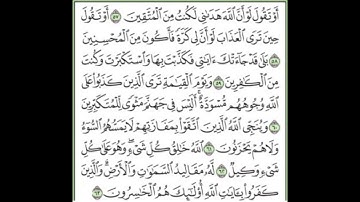 أَوْ تَقُولَ لَوْ أَنَّ ٱللَّهَ هَدَىٰنِى لَكُنتُ مِنَ ٱلْمُتَّقِينَ ٥٧ أَوْ تَقُولَ
حِينَ تَرَى ٱلْعَذَابَ لَوْ أَنَّ لِى كَرَّةً فَأَكُونَ مِنَ ٱلْمُحْسِنِينَ
٥٨ بَلَىٰ قَدْ جَآءَتْكَ ءَايَٰتِى فَكَذَّبْتَ بِهَا وَٱسْتَكْبَرْتَ وَكُنتَ
مِنَ ٱلْكَٰفِرِينَ ٥٩ وَيَوْمَ ٱلْقِيَٰمَةِ تَرَى ٱلَّذِينَ كَذَبُوا۟ عَلَى
ٱللَّهِ وُجُوهُهُم مُّسْوَدَّةٌ أَلَيْسَ فِى جَهَنَّمَ مَثْوًى لِّلْمُتَكَبِّرِينَ
٦٠ وَيُنَجِّى ٱللَّهُ ٱلَّذِينَ ٱتَّقَوْا۟ بِمَفَازَتِهِمْ لَا يَمَسُّهُمُ ٱلسُّوٓءُ
وَلَا هُمْ يَحْزَنُونَ ٦١ ٱللَّهُ خَٰلِقُ كُلِّ شَىْءٍ وَهُوَ عَلَىٰ كُلِّ
شَىْءٍ وَكِيلٌ ٦٢ لَّهُۥ مَقَالِيدُ ٱلسَّمَٰوَٰتِ وَٱلْأَرْضِ وَٱلَّذِينَ
كَفَرُوا۟ بِـَٔايَٰتِ ٱللَّهِ أُو۟لَٰٓئِكَ هُمُ ٱلْخَٰسِرُونَ ٦٣